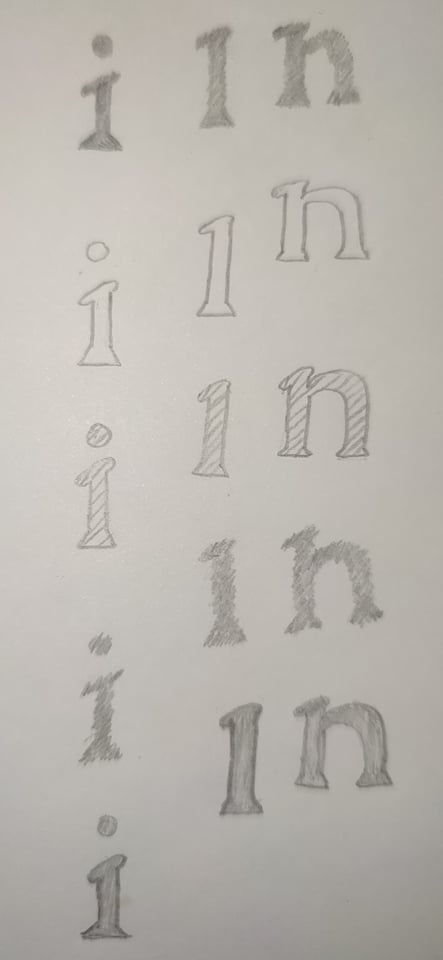 i l n
i l n
i l n
i l n
i l n